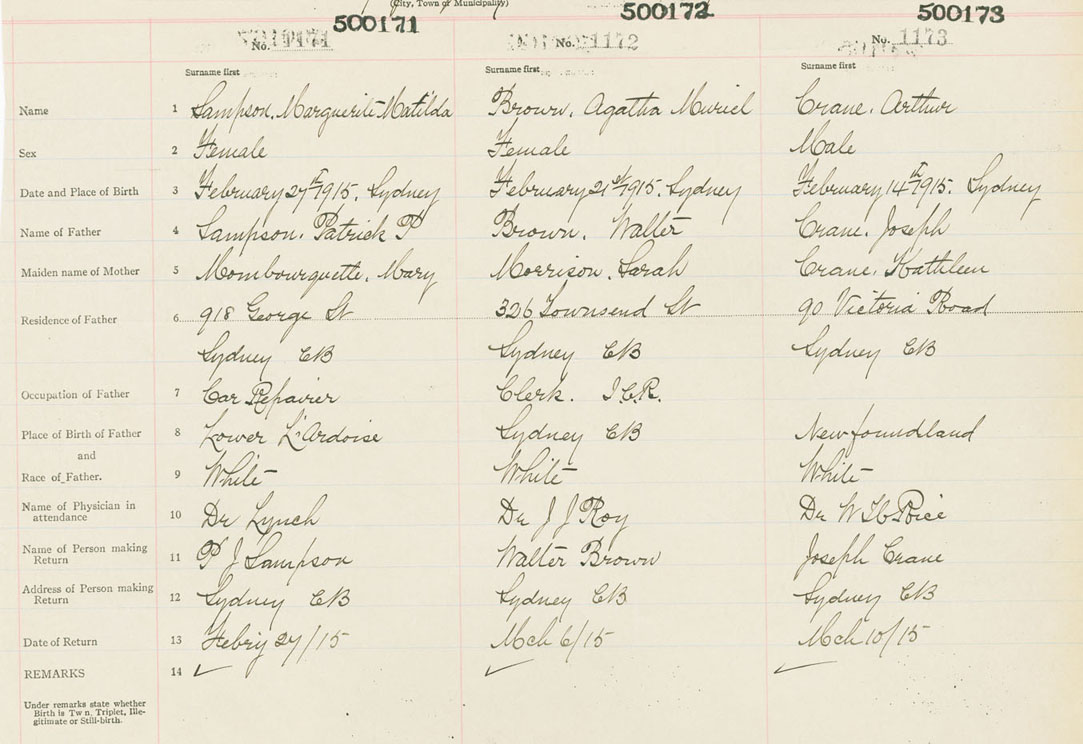 (City, Town or Municipality)
500171 500172 500173
No. No. 1172 No. 1173
Surname first Surname first Surname first
Name 1 Sampson, Marguerite Matilda Brown, Agatha Muriel Crane, Arthur
Sex 2 Female Female Male
Date and Place of Birth 3 February 27th 1915, Sydney February 21st 1915, Sydney February 14th 1915, Sydney
Name of Father 4 Sampson, Patrick P Brown, Walter Crane, Joseph
Maiden name of Mother 5 Mombourquette, Mary Morrison, Sarah Crane, Kathleen
Residence of Father 6 918 George St 326 Townsend St 90 Victoria Road
Sydney CB Sydney CB Sydney CB
Occupation of Father 7 Car Repairer Clerk. I.C.R.
Place of Birth of Father 8 Lower L'Ardoise Sydney CB Newfoundland
and
Race of Father. 9 White White White
Name of Physician in
attendance 10 Dr Lynch Dr J J Roy Dr W
Name of Person making
Return 11 P J Sampson Walter Brown Joseph Crane
Address of Person making
Return 12 Sydney CB Sydney CB Sydney CB
Date of Return 13 Febry 27/15 Mch 6/15 Mch 10/15
REMARKS 14
Under remarks state whether
Birth is Tw n, Triplet, Ille-
gitimate or Still-birth.